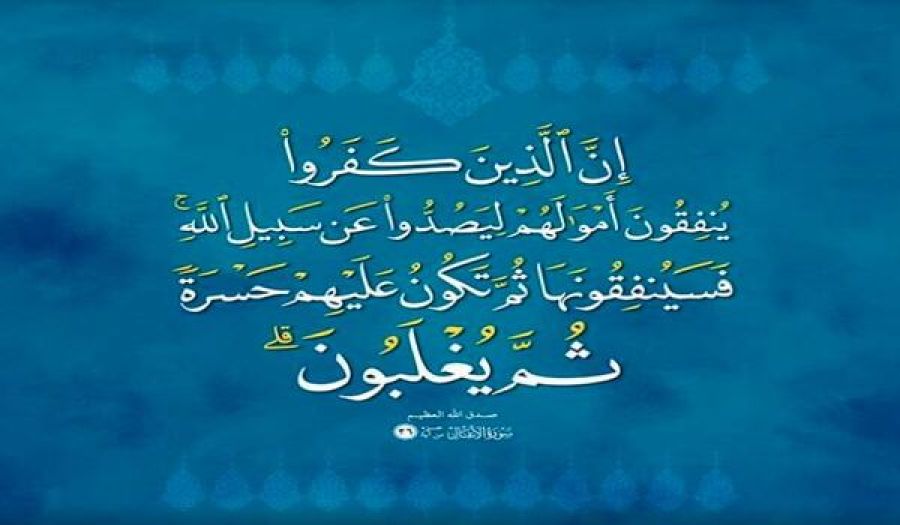 إِنَّ ٱلَّذِينَ كَفَرُوا۟
يُنفِقُونَ أَمْوَٰلَهُمْ لِيَصُدُّوا۟ عَن سَبِيلِ ٱللَّهِ ۚ
فَسَيُنفِقُونَهَا ثُمَّ تَكُونُ عَلَيْهِمْ حَسْرَةً
ثُمَّ يُغْلَبُونَ ۗ
صدق الله العظيم
سورة الأنفال من آية ٣٦